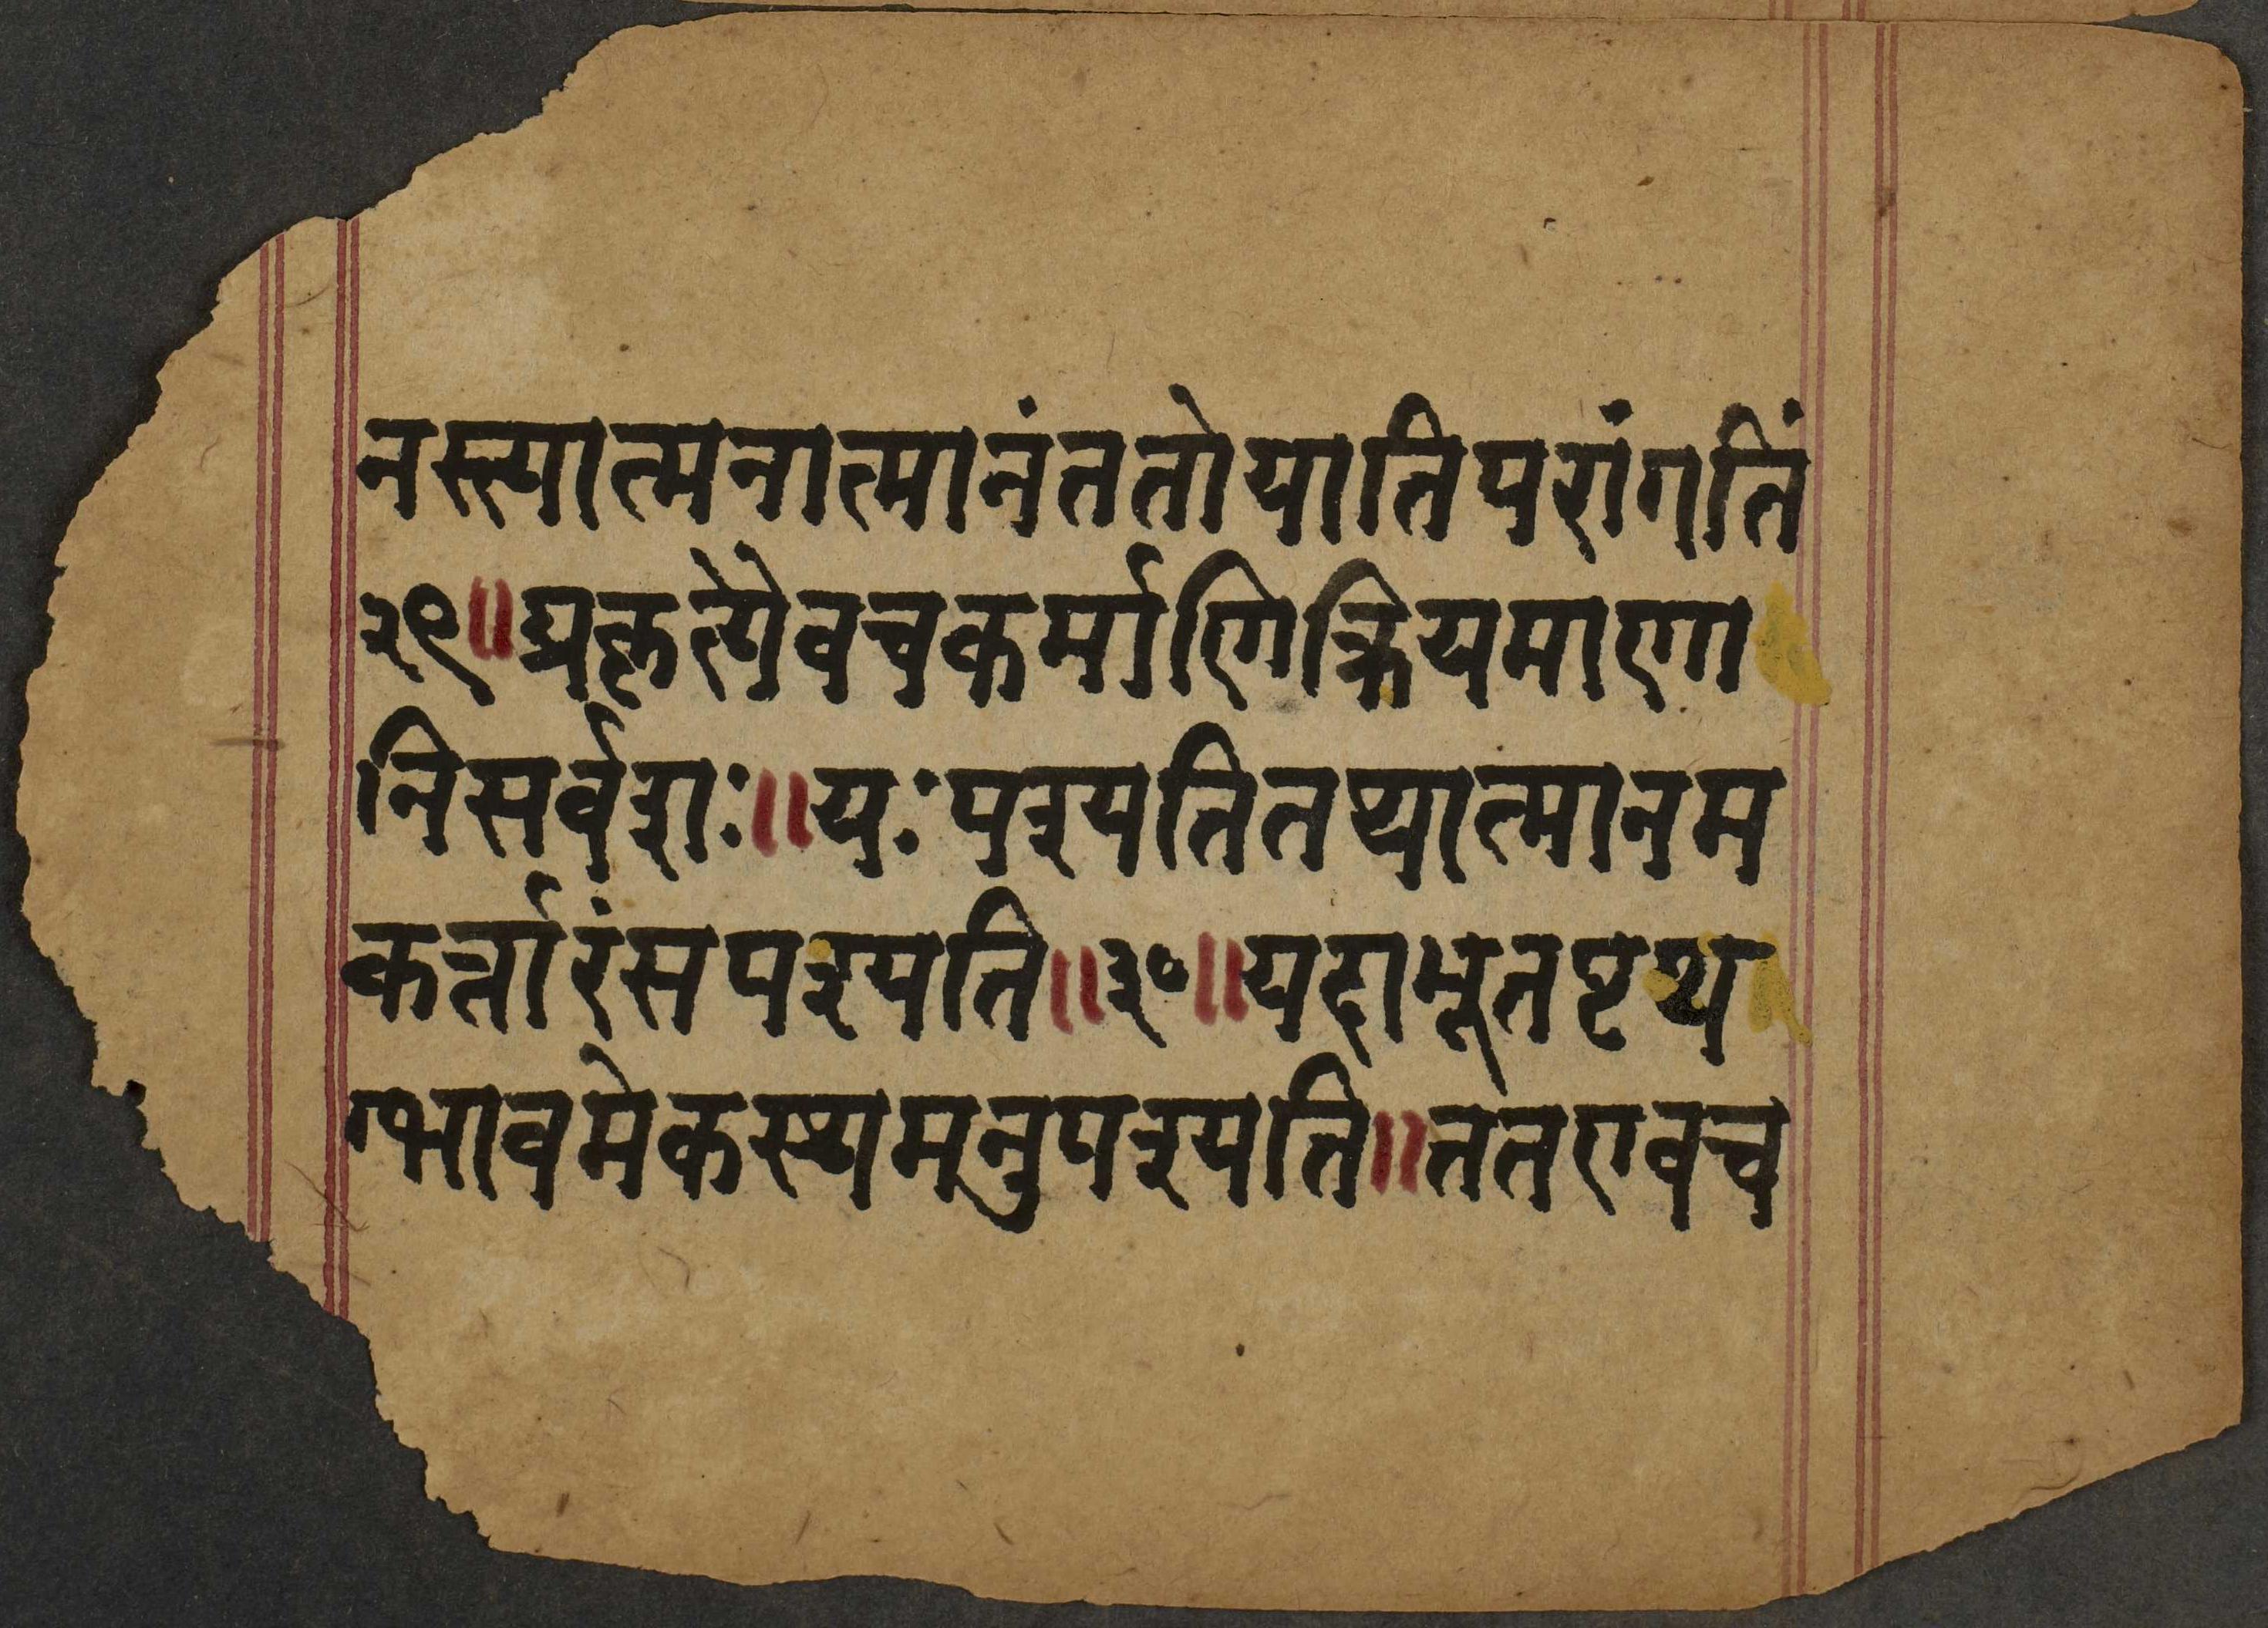 नस्त्यात्मनात्मानंततोयातिपरांगतिं
२९॥प्रकृत्येवचकर्माणिक्रियमाणा
निसर्वशः॥यःपश्यतितथात्मानम
कर्त्तारंसपश्यति॥३०॥यदाभूतपृथ
ग्भावमेकस्थमनुपश्यति॥ततएवच